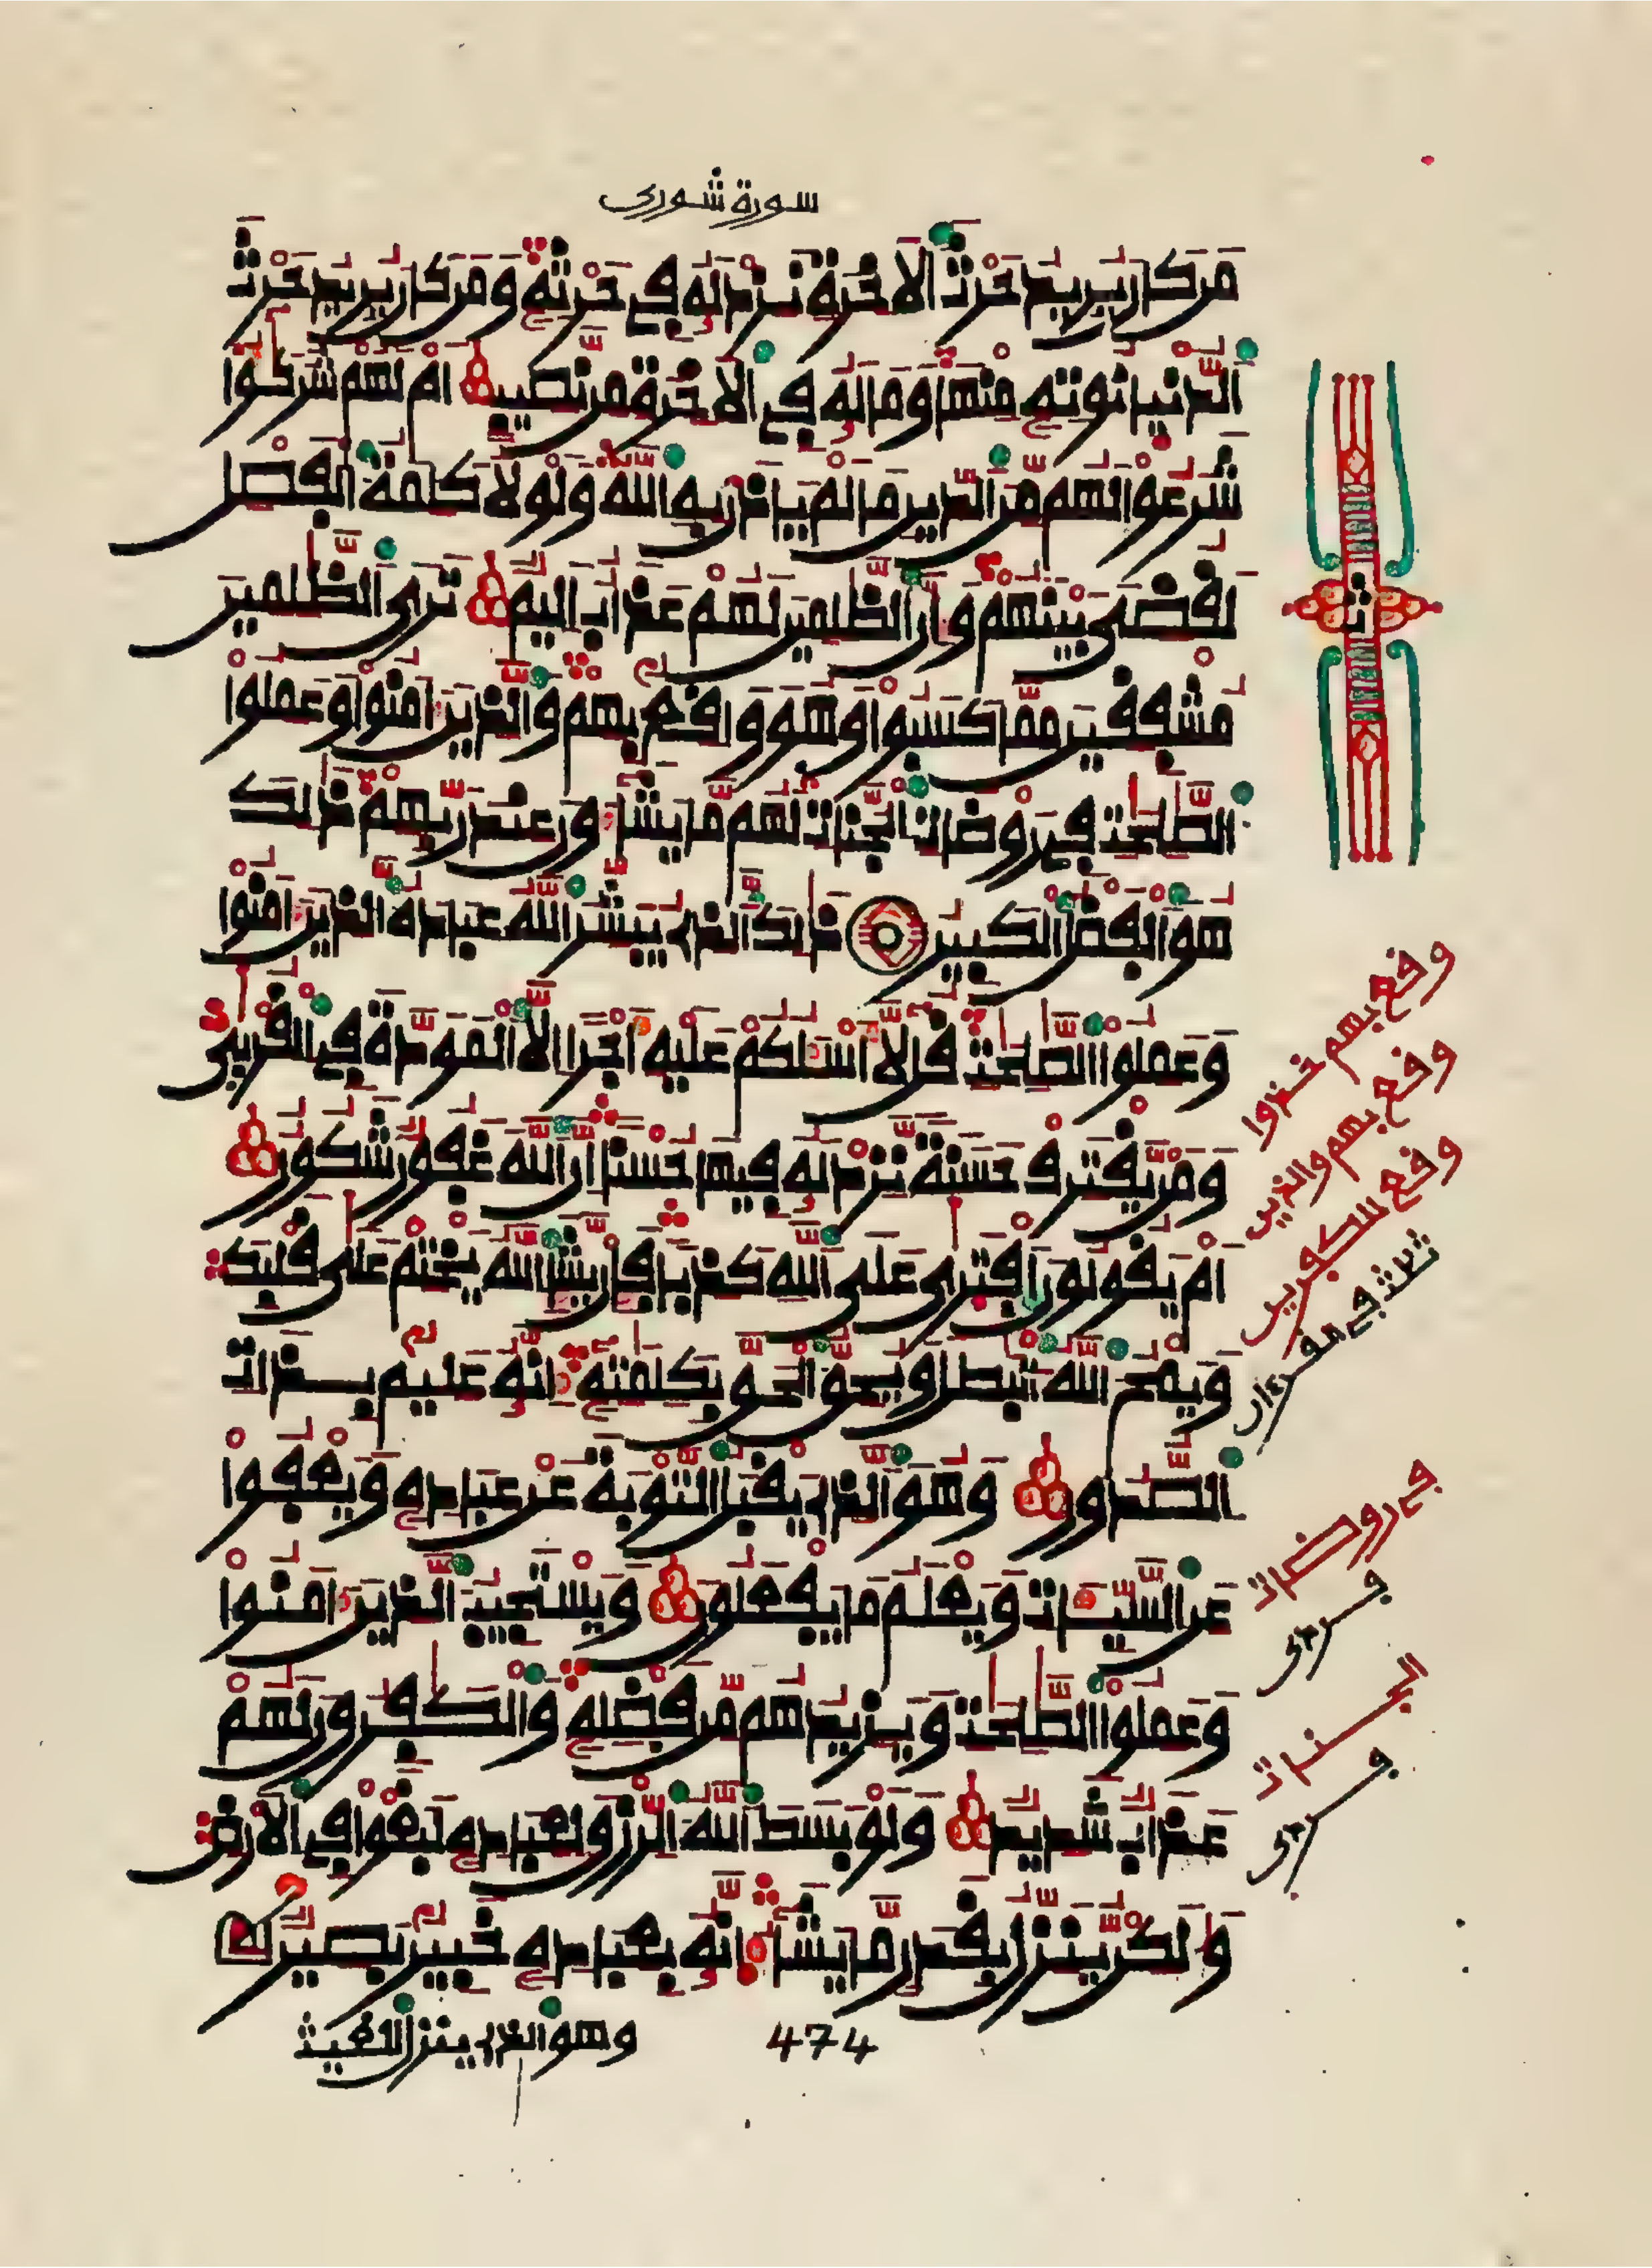 سورة شورى
مَن كَانَ يُرِيدُ حَرْثَ الَاخِرَةِ نَزِدْ لَهُ فِي حَرْثِهِ وَمَن كَانَ يُرِيدُ حَرْثَ
الدُّنْيَا نُوتِهِ مِنْهَا وَمَا لَهُ فِي الَاخِرَةِ مِن نَّصِيبٍ أَمْ لَهُمْ شُرَكَٰٓؤُا
شَرَعُوا لَهُم مِّنَ الدِّينِ مَا لَمْ يَاذَن بِهِ اللَّهُ وَلَوْلَا كَلِمَةُ الْفَصْلِ
لَقُضِيَ بَيْنَهُمْ وَإِنَّ الظَّٰلِمِينَ لَهُمْ عَذَابٌ أَلِيمٌ تَرَى الظَّٰلِمِينَ
مُشْفِقِينَ مِمَّا كَسَبُوا وَهُوَ وَاقِعٌ بِهِمْ وَالَّذِينَ ءَامَنُوا وَعَمِلُوا
الصَّٰلِحَٰتِ فِي رَوْضَاتِ الْجَنَّاتِ لَهُم مَّا يَشَآءُونَ عِندَ رَبِّهِمْ ذَٰلِكَ
هُوَ الْفَضْلُ الْكَبِيرُ ذَٰلِكَ الَّذِي يُبَشِّرُ اللَّهُ عِبَادَهُ الَّذِينَ ءَامَنُوا
وَعَمِلُوا الصَّٰلِحَٰتِ قُل لَّا أَسْـَٔلُكُمْ عَلَيْهِ أَجْرًا إِلَّا الْمَوَدَّةَ فِي الْقُرْبَىٰ
وَمَن يَقْتَرِفْ حَسَنَةً نَّزِدْ لَهُ فِيهَا حُسْنًا إِنَّ اللَّهَ غَفُورٌ شَكُورٌ
أَمْ يَقُولُونَ افْتَرَىٰ عَلَى اللَّهِ كَذِبًا فَإِن يَشَإِ اللَّهُ يَخْتِمْ عَلَىٰ قَلْبِكَ
وَيَمْحُ اللَّهُ الْبَٰطِلَ وَيُحِقُّ الْحَقَّ بِكَلِمَٰتِهِ إِنَّهُ عَلِيمٌ بِذَاتِ
الصُّدُورِ وَهُوَ الَّذِي يَقْبَلُ التَّوْبَةَ عَنْ عِبَادِهِ وَيَعْفُوا
عَنِ السَّيِّـَٔاتِ وَيَعْلَمُ مَا يَفْعَلُونَ وَيَسْتَجِيبُ الَّذِينَ ءَامَنُوا
وَعَمِلُوا الصَّٰلِحَٰتِ وَيَزِيدُهُم مِّن فَضْلِهِ وَالْكَٰفِرُونَ لَهُمْ
عَذَابٌ شَدِيدٌ وَلَوْ بَسَطَ اللَّهُ الرِّزْقَ لِعِبَادِهِ لَبَغَوْا فِي الَارْضِ
وَلَٰكِن يُنَزِّلُ بِقَدَرٍ مَّا يَشَآءُ إِنَّهُ بِعِبَادِهِ خَبِيرٌ بَصِيرٌ
وهو الذي ينزل الغيث
474
واقع بهم خذوا
واقع بهم والذين
واقع للكٰفرين
ثلاث في القرءان
في روضات
الجنات